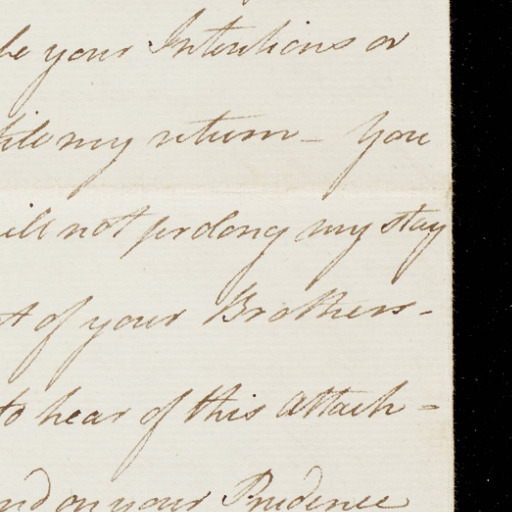 be your Intentions or
my return - You
ill not prolong my stay
of your Brothers -
to hear of this attach =
nd on your Prudence